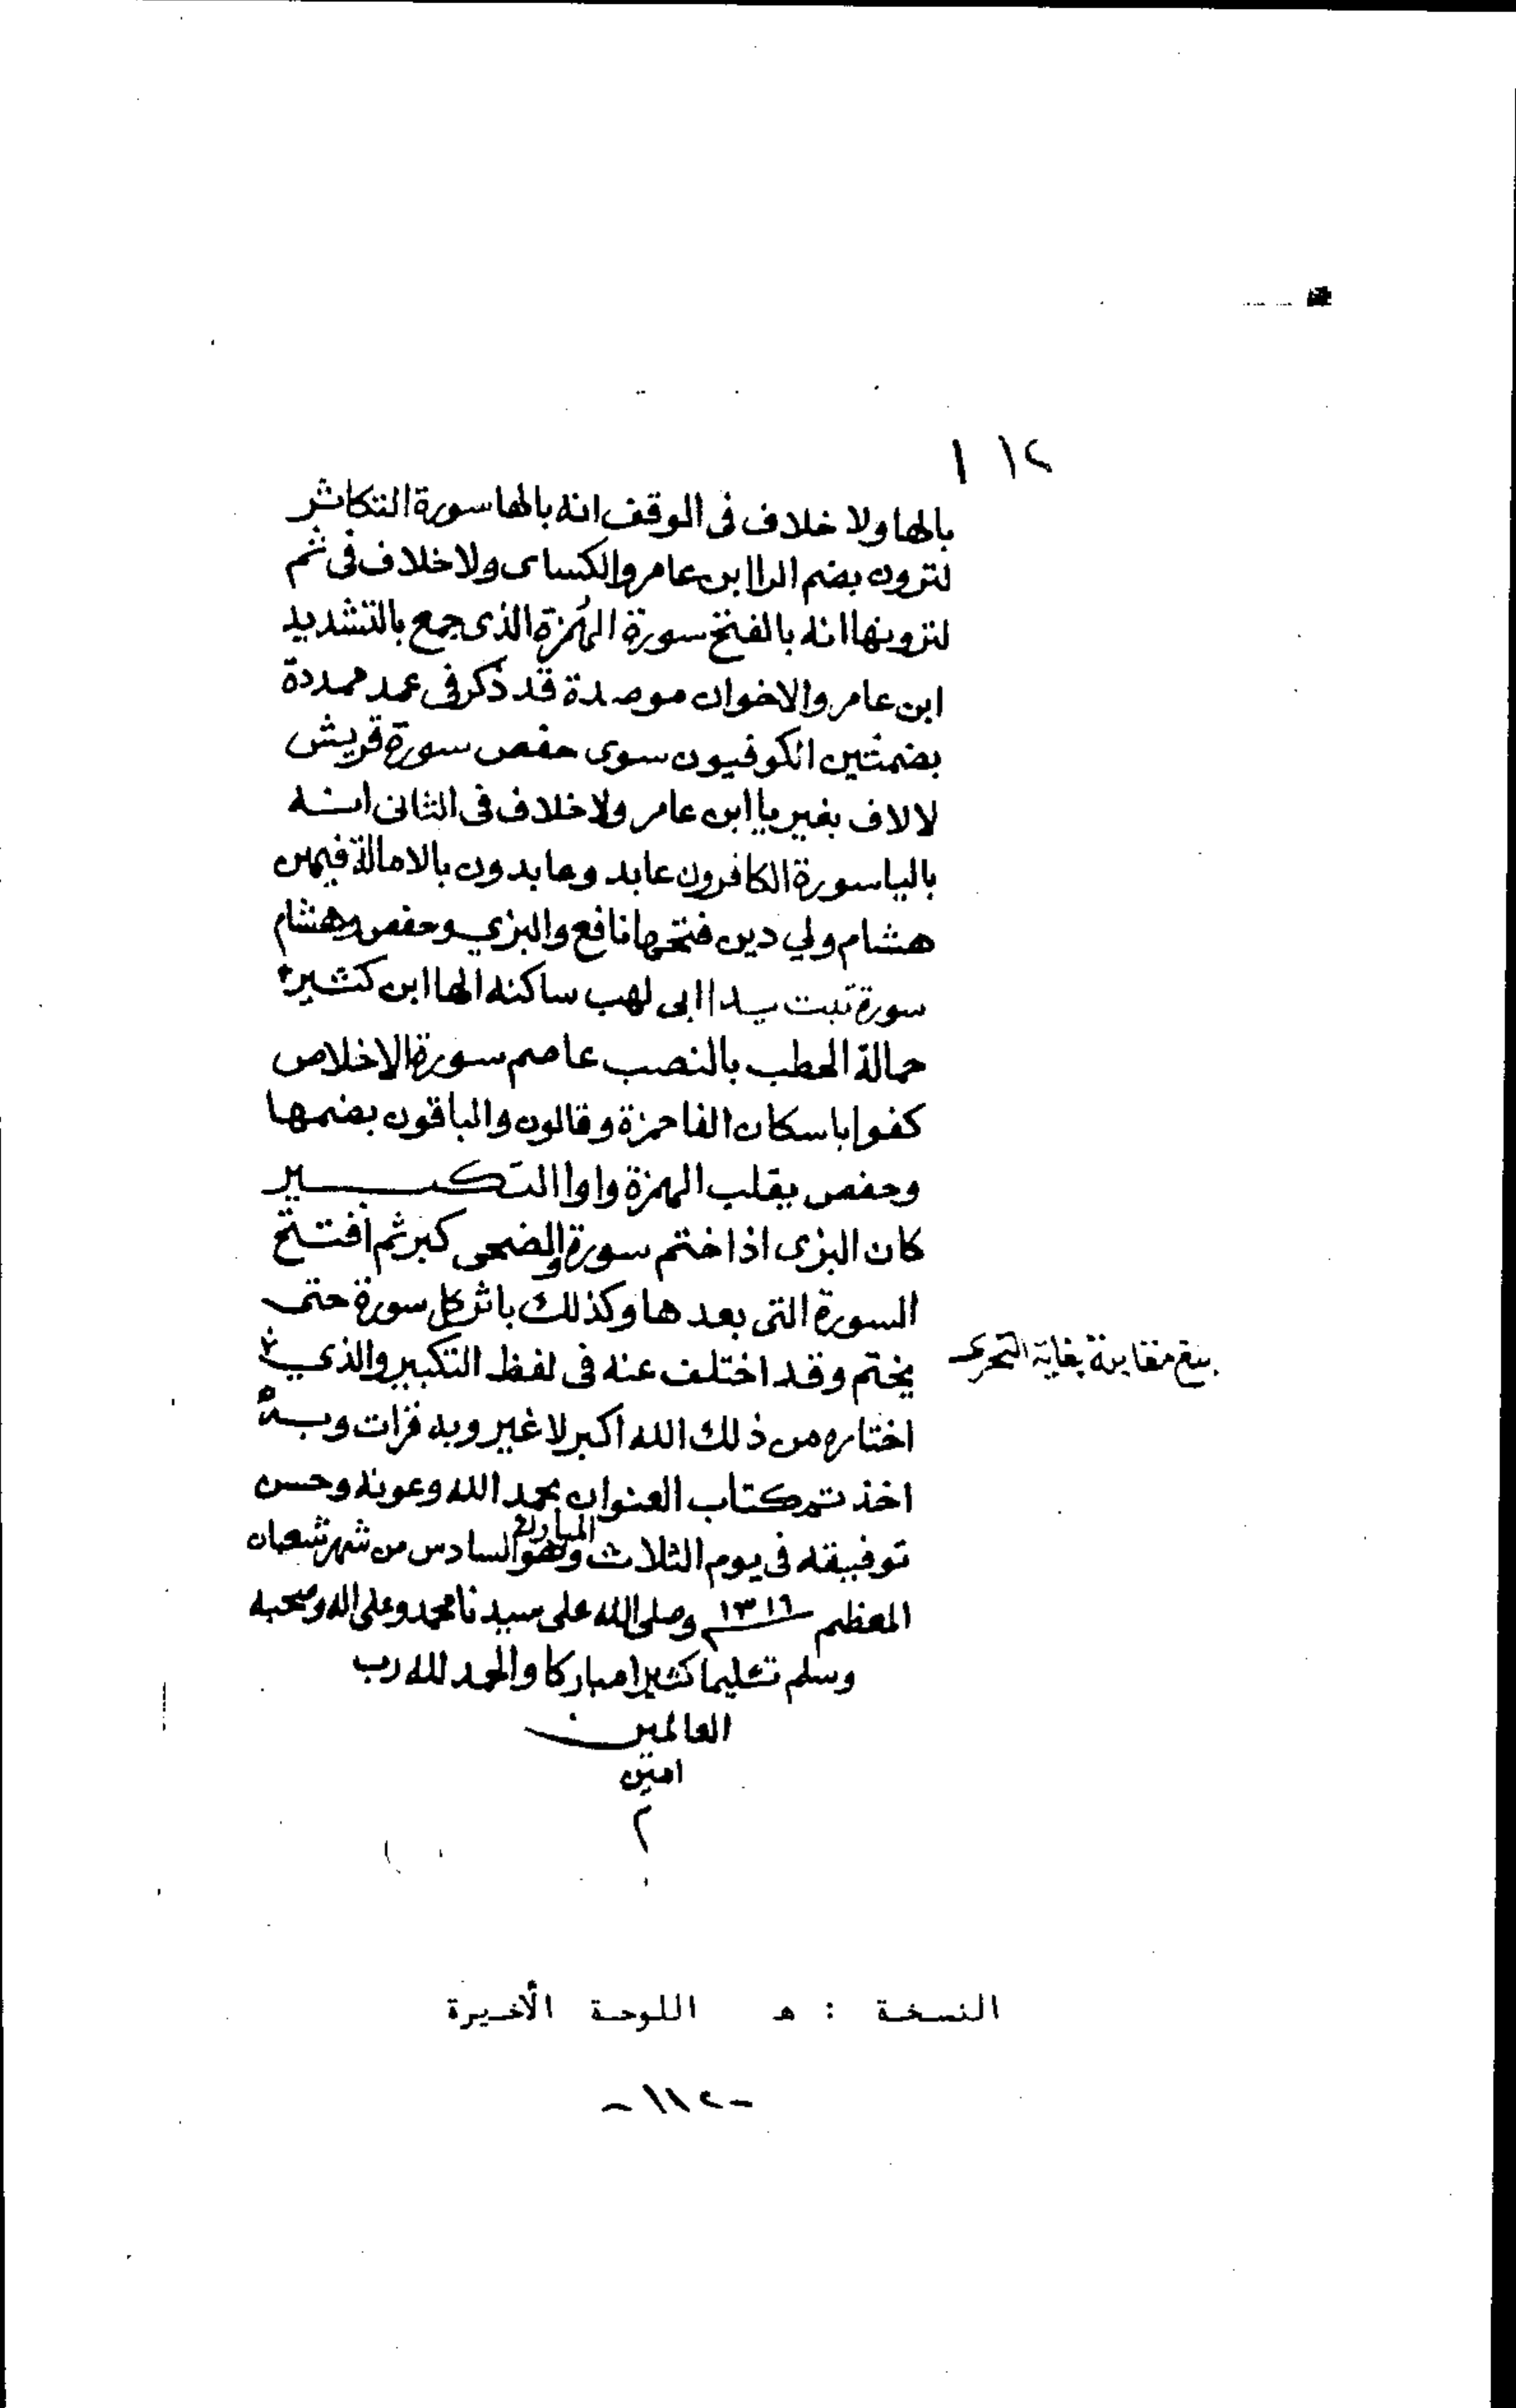 ١١٢
بالها ولا خلاف فى الوقف انه بالها سورة التكاثر
لترون بضم الرا ابن عامر والكساى ولا خلاف فى ثم
لترونها انه بالفتح سورة الهُمزة الذى جمع بالتشديد
ابن عامر والاخوان موصدة قد ذكر فى عمد ممددة
بضمتين الكوفيون سوى حفص سورة قريش
لالاف بغير يا ابن عامر ولا خلاف فى الثانى انه
باليا سورة الكافرون عابد وعابدون بالامالة فيهن
هشام ولي دين فتحها نافع والبزي وحفص وهشام
سورة تبت يدا ابى لهب ساكنه الها ابن كثير
حمالة الحطب بالنصب عاصم سورة الاخلاص
كفوا باسكان الفا حمزة وقالون والباقون بضمها
وحفص بقلب الهمزة واوا التكبير
كان البزى اذا ختم سورة والضحى كبر ثم افتتح
السورة التى بعدها وكذلك باثر كل سورة حتى
يختم وقد اختلف عنه فى لفظ التكبير والذي
اختاره من ذلك الله اكبر لا غير وبه قرات وبه
اخذ تم كتاب العنوان بحمد الله وعونه وحسن
توفيقه فى يوم الثلاث المبارك وهو السادس من شهر شعبان
المعظم ١٣١٦ وصلى الله على سيدنا محمد وعلى اله وصحبه
وسلم تسليما كثيرا مباركا والحمد لله رب
العالمين
امين
م
مقابلة بغاية التحرى
النسخة : هـ اللوحة الأخيرة
-١١٢-